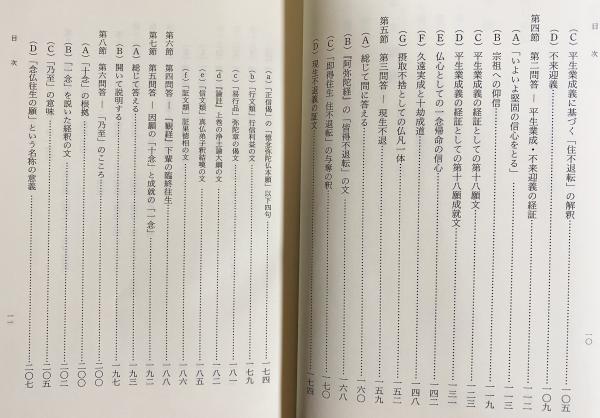 (C) 平生業成義に基づく「住不退転」の解釈……一〇五
(D) 不来迎義……一〇九
第四節 第二問答 ― 平生業成・不来迎義の経証……一一二
(A) 「いよいよ堅固の信心をとる」……一一三
(B) 宗祖への仰信……一一九
(C) 平生業成義の経証としての第十八願文……一二三
(D) 平生業成義の経証としての第十八願成就文……一三一
(E) 仏心としての一念帰命の信心……一四二
(F) 久遠実成と十劫成道……一四八
(G) 摂取不捨としての仏凡一体……一五二
第五節 第三問答 ― 現生不退……一五九
(A) 総じて問に答える……一六〇
(B) 『阿弥陀経』の「皆得不退転」の文……一六八
(C) 「即得往生 住不退転」の与奪の釈……一七〇
(D) 現生不退義の証文……一七四
一〇
目次
(a) 「正信偈」の「憶念弥陀仏本願」以下四句……一七四
(b) 「行文類」行信利益の文……一七九
(c) 『易行品』弥陀章の偈文……一八一
(d) 『論註』上巻の浄土論大綱の文……一八二
(e) 「信文類」真仏弟子釈結嘆の文……一八五
(f) 「証文類」証果徳相の文……一八六
第六節 第四問答 ― 『観経』下輩の臨終往生……一八八
第七節 第五問答 ― 因願の「十念」と成就の「一念」……一九二
(A) 総じて答える……一九三
(B) 開いて説明する……一九七
第八節 第六問答 ― 「乃至」のこころ……二〇〇
(A) 「十念」の根拠……二〇〇
(B) 「一念」を説いた経釈の文……二〇二
(C) 「乃至」の意味……二〇五
(D) 「念仏往生の願」という名称の意義……二〇七
目次
一一